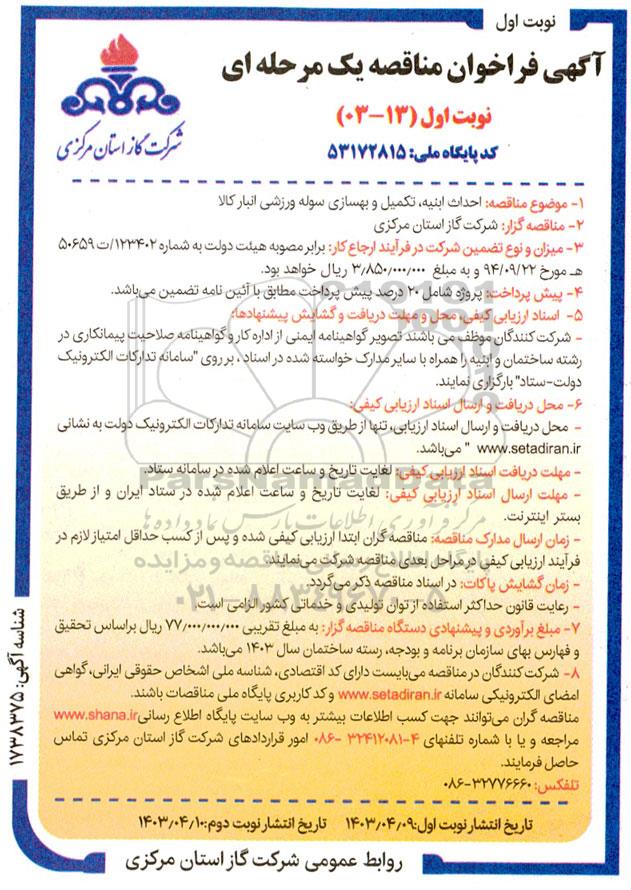 نوبت اول
آگهی فراخوان مناقصه یک مرحله ای
نوبت اول (۱۳-۰۳)
کد پایگاه ملی: ۵۳۱۷۲۸۱۵
شرکت گاز استان مرکزی
۱- موضوع مناقصه: احداث ابنیه، تکمیل و بهسازی سوله ورزشی انبار کالا
۲- مناقصه گزار: شرکت گاز استان مرکزی
۳- میزان و نوع تضمین شرکت در فرآیند ارجاع کار: برابر مصوبه هیئت دولت به شماره ۱۲۳۴۰۲/ت ۵۰۶۵۹
هـ مورخ ۹۴/۰۹/۲۲ و به مبلغ ۳/۸۵۰/۰۰۰/۰۰۰ ریال خواهد بود.
۴- پیش پرداخت: پروژه شامل ۲۰ درصد پیش پرداخت مطابق با آئین نامه تضمین می‌باشد.
۵- اسناد ارزیابی کیفی، محل و مهلت دریافت و گشایش پیشنهادها:
- شرکت کنندگان موظف می باشند تصویر گواهینامه ایمنی از اداره کار و گواهینامه صلاحیت پیمانکاری در
رشته ساختمان و ابنیه را همراه با سایر مدارک خواسته شده در اسناد ، بر روی "سامانه تدارکات الکترونیک
دولت-ستاد" بارگزاری نمایند.
۶- محل دریافت و ارسال اسناد ارزیابی کیفی:
- محل دریافت و ارسال اسناد ارزیابی، تنها از طریق وب سایت سامانه تدارکات الکترونیک دولت به نشانی
www.setadiran.ir " می‌باشد.
- مهلت دریافت اسناد ارزیابی کیفی: لغایت تاریخ و ساعت اعلام شده در سامانه ستاد.
- مهلت ارسال اسناد ارزیابی کیفی: لغایت تاریخ و ساعت اعلام شده در ستاد ایران و از طریق
بستر اینترنت.
- زمان ارسال مدارک مناقصه: مناقصه گران ابتدا ارزیابی کیفی شده و پس از کسب حداقل امتیاز لازم در
فرآیند ارزیابی کیفی در مراحل بعدی مناقصه شرکت می‌نمایند.
- زمان گشایش پاکات: در اسناد مناقصه ذکر می‌گردد.
- رعایت قانون حداکثر استفاده از توان تولیدی و خدماتی کشور الزامی است.
۷- مبلغ برآوردی و پیشنهادی دستگاه مناقصه گزار: به مبلغ تقریبی ۷۷/۰۰۰/۰۰۰/۰۰۰ ریال براساس تحقیق
و فهارس بهای سازمان برنامه و بودجه، رسته ساختمان سال ۱۴۰۳ می‌باشد.
۸- شرکت کنندگان در مناقصه می‌بایست دارای کد اقتصادی، شناسه ملی اشخاص حقوقی ایرانی، گواهی
امضای الکترونیکی سامانه www.setadiran.ir و کد کاربری پایگاه ملی مناقصات باشند.
مناقصه گران می‌توانند جهت کسب اطلاعات بیشتر به وب سایت پایگاه اطلاع رسانی www.shana.ir
مراجعه و یا با شماره تلفنهای ۴-۳۲۴۱۲۰۸۱ -۰۸۶ امور قراردادهای شرکت گاز استان مرکزی تماس
حاصل فرمایند.
تلفکس: ۳۲۷۷۶۶۶۰-۰۸۶
تاریخ انتشار نوبت اول: ۱۴۰۳/۰۴/۰۹ تاریخ انتشار نوبت دوم: ۱۴۰۳/۰۴/۱۰
روابط عمومی شرکت گاز استان مرکزی
شناسه آگهی: ۱۷۳۸۳۷۵
ParsNamadData
مرکز فرآوری اطلاعات پارس نماد داده ها
پایگاه اطلاع رسانی مناقصه و مزایده
۰۲۱-۸۸۳۴۹۶۷۰-۵